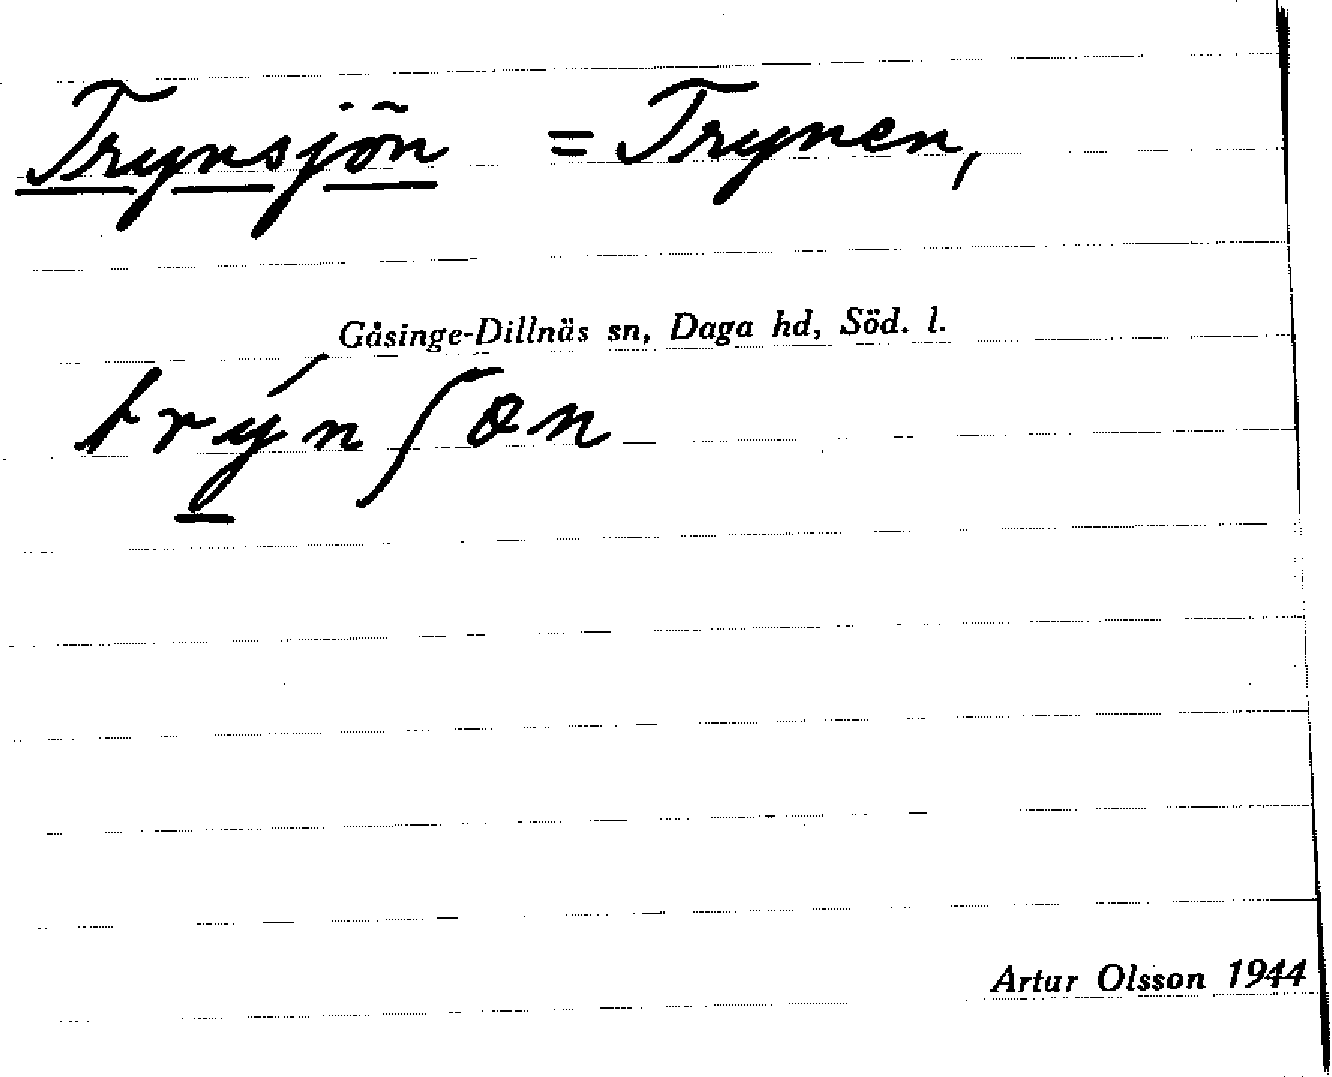 Trynsjön = Trynen,
Gåsinge-Dillnäs sn, Daga hd, Söd. l.
trýnʃøn
Artur Olsson 1944